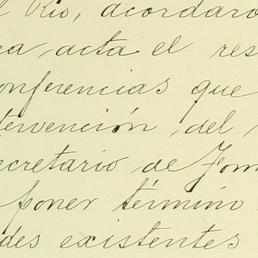 l Rio, acordaro
ea, acta el res
onferencias que
tervención, del
ecretario de Fom
poner término
des existentes